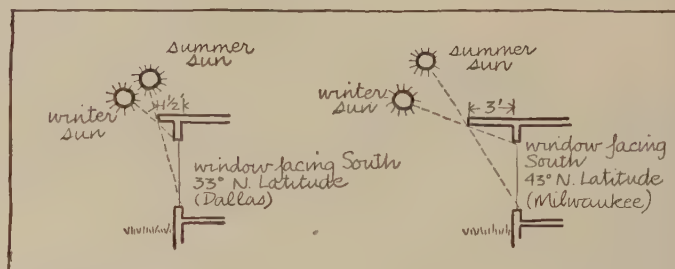 summer
sun
winter
sun
1½'
window facing South
33° N. Latitude
(Dallas)
summer
sun
winter
sun
3'
window facing
South
43° N. Latitude
(Milwaukee)